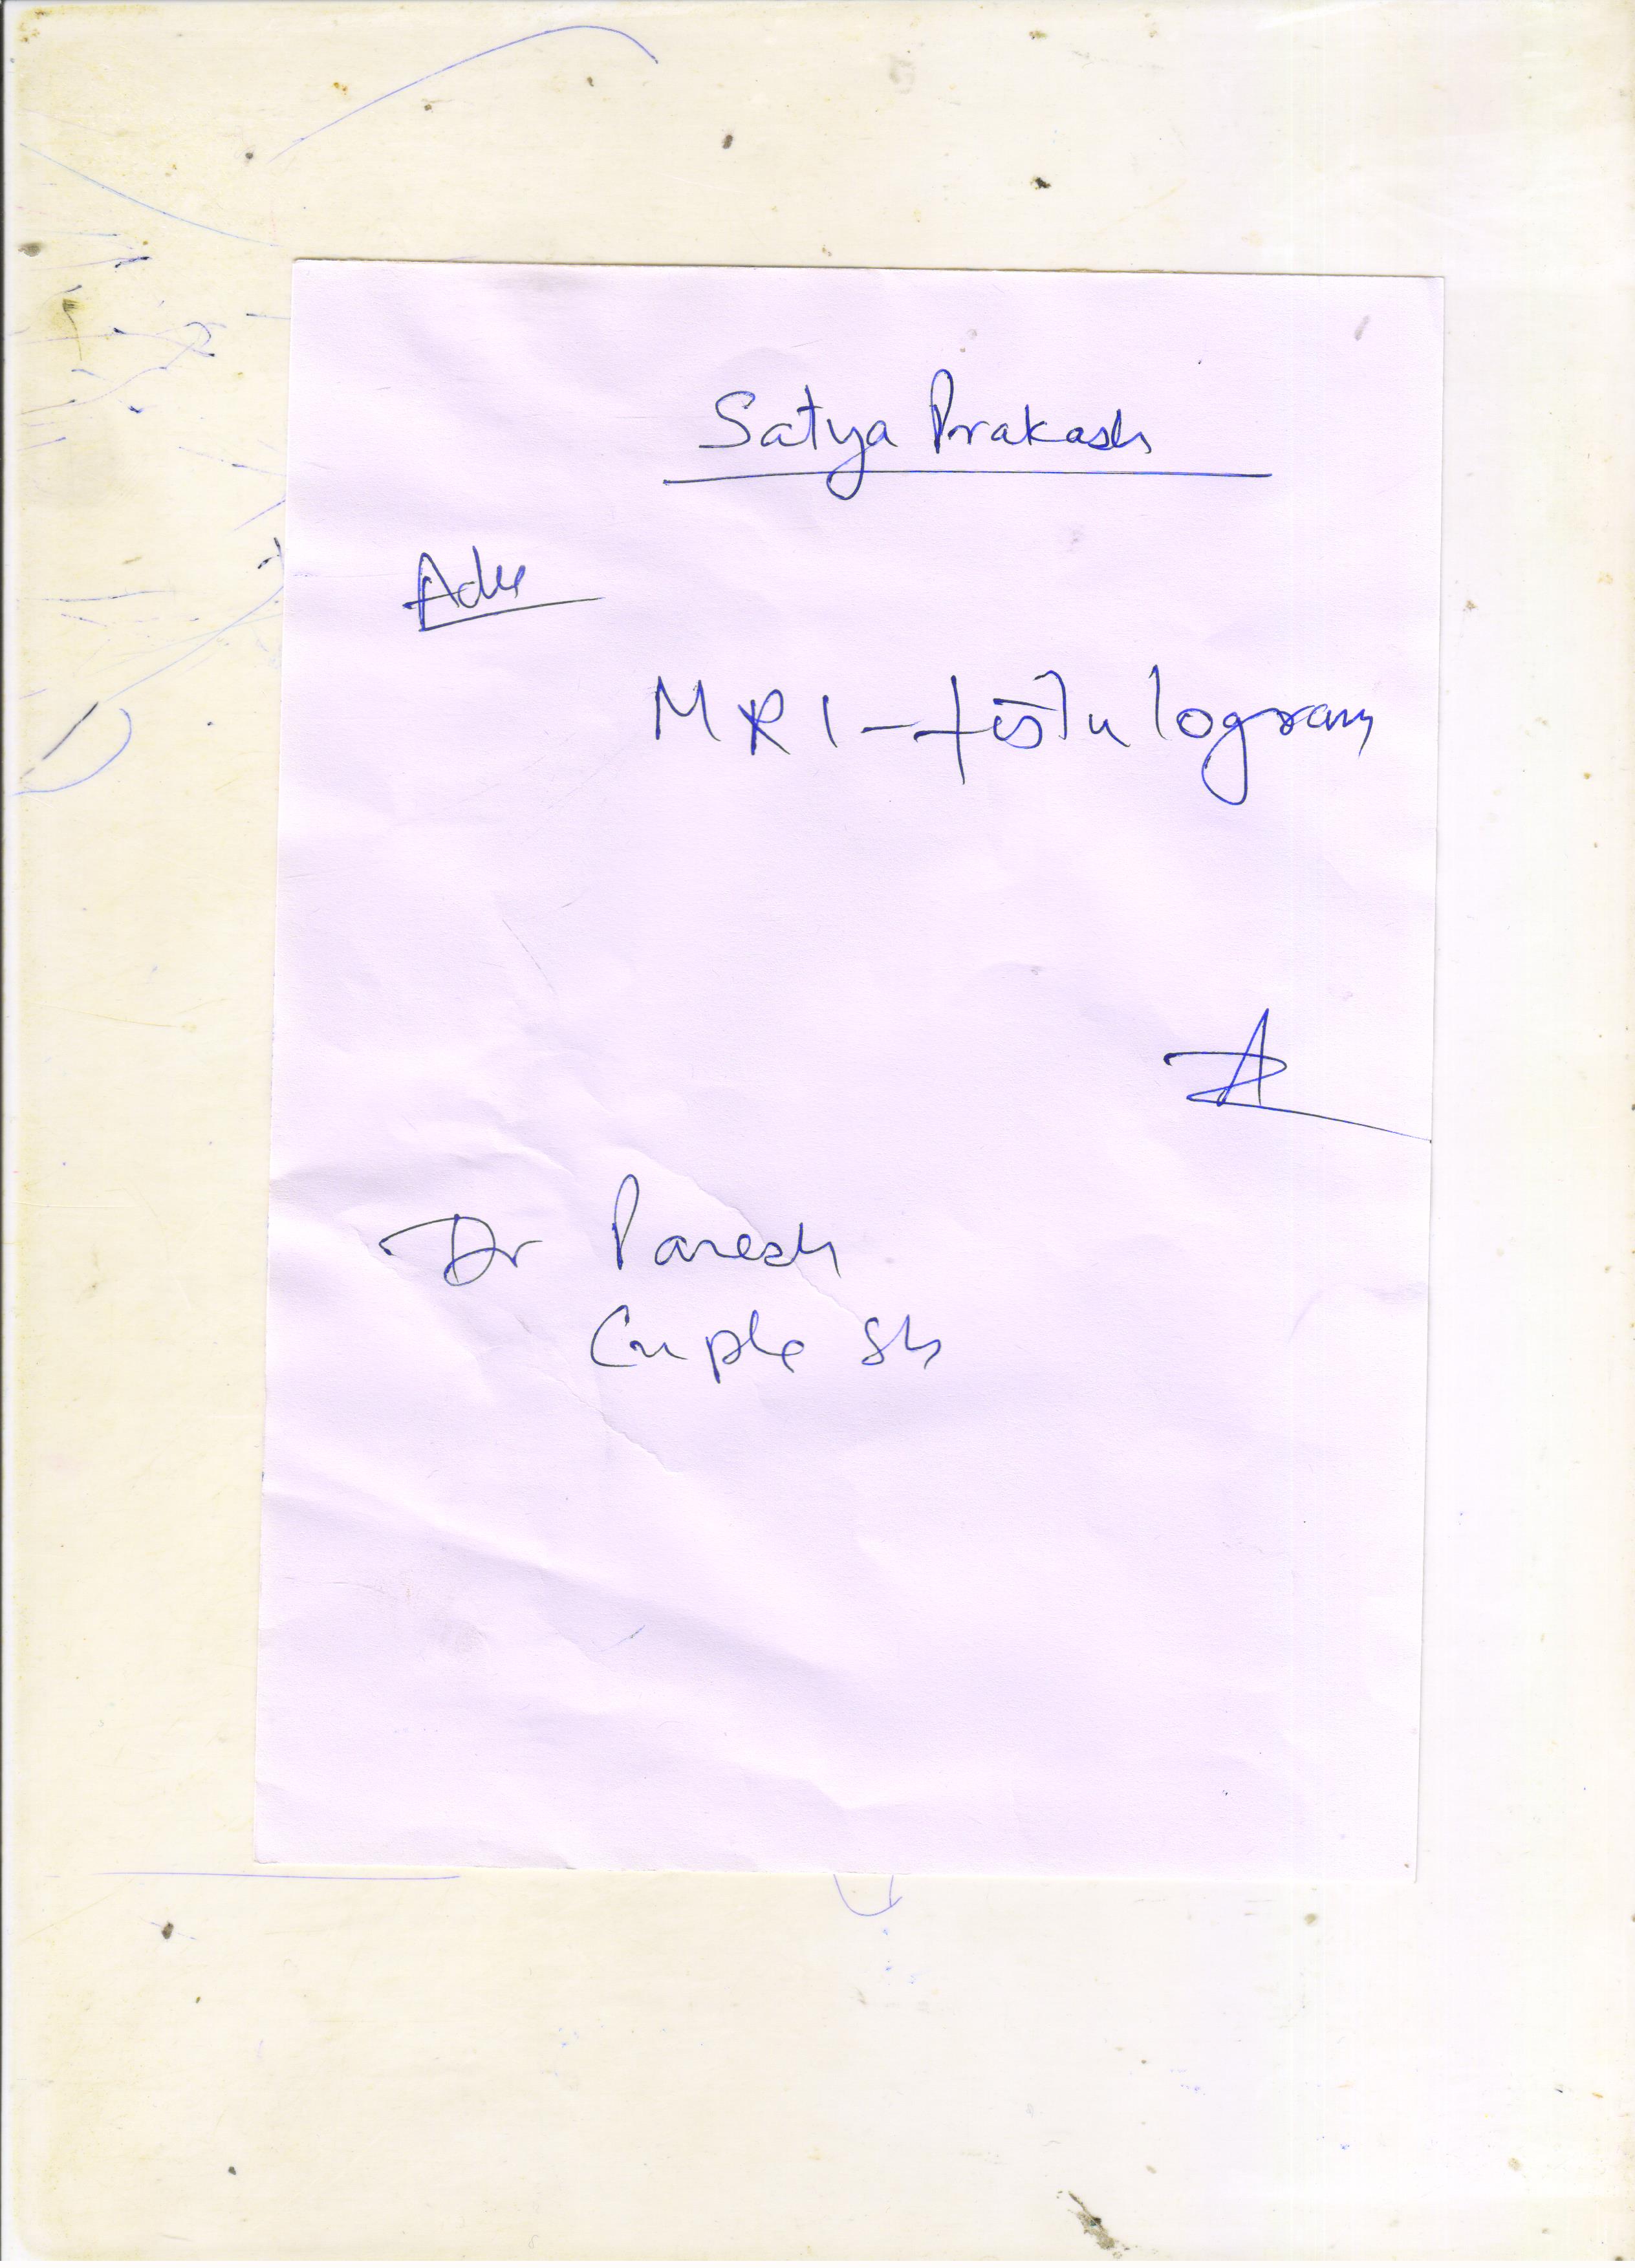 Satya Prakash
Adv
MRI - fistulogram
Dr Paresh